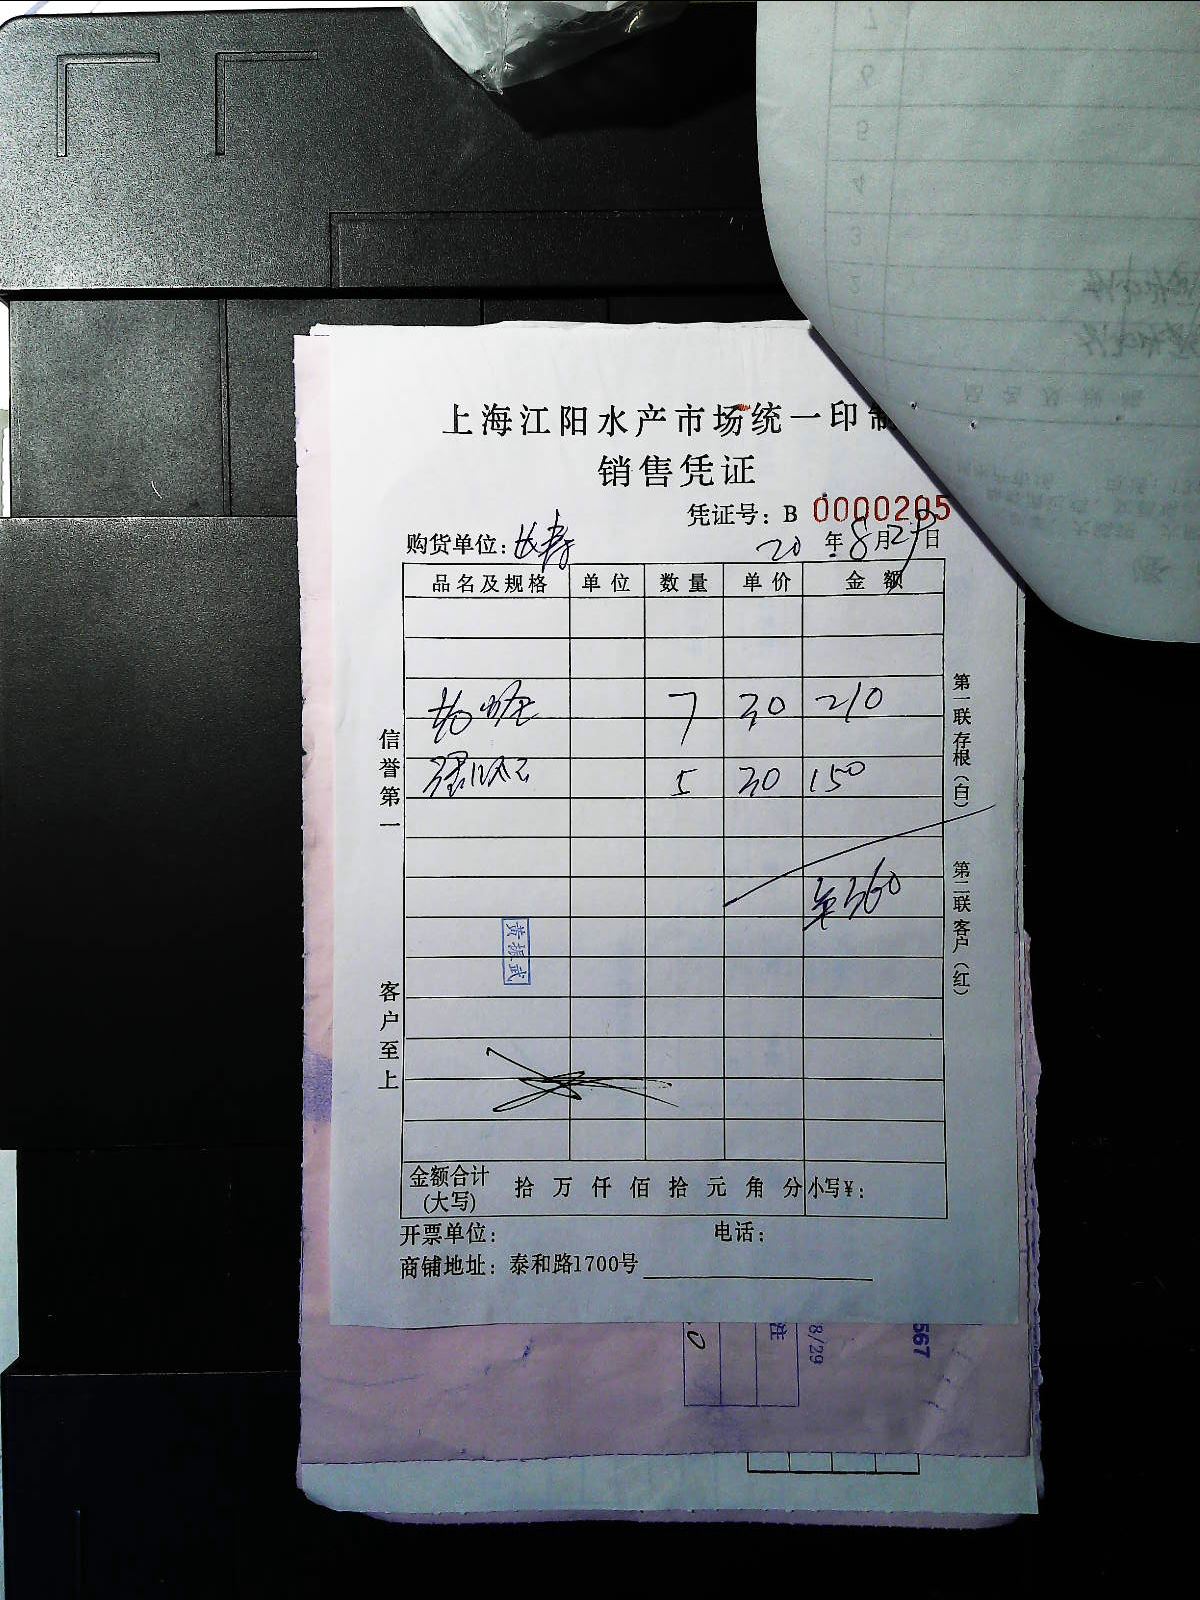 上海江阳水产市场统一印制
销售凭证
凭证号：B 0000205
购货单位：长寿 20 年 8 月 29 日
品名及规格 单位 数量 单价 金额
7 30 210
5 30 150
360
信誉第一
客户至上
第一联存根（白）
第二联客户（红）
黄振武
金额合计(大写) 拾 万 仟 佰 拾 元 角 分 小写¥：
开票单位： 电话：
商铺地址：泰和路1700号
567
8/29
注
7
6
5
4
3
2